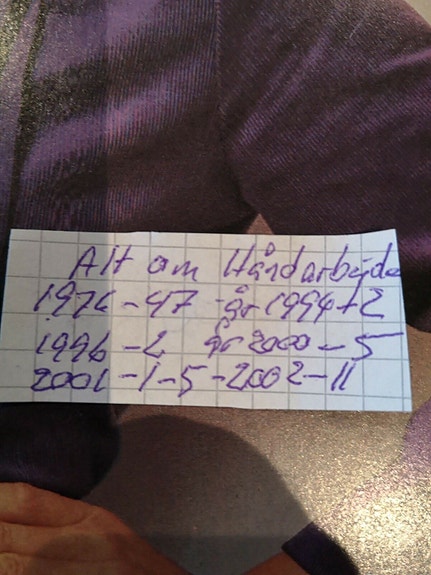 Alt om Håndarbejde
1976-47-år 1994+2
1996-2 år 2000-5
2001-1-5-2002-11